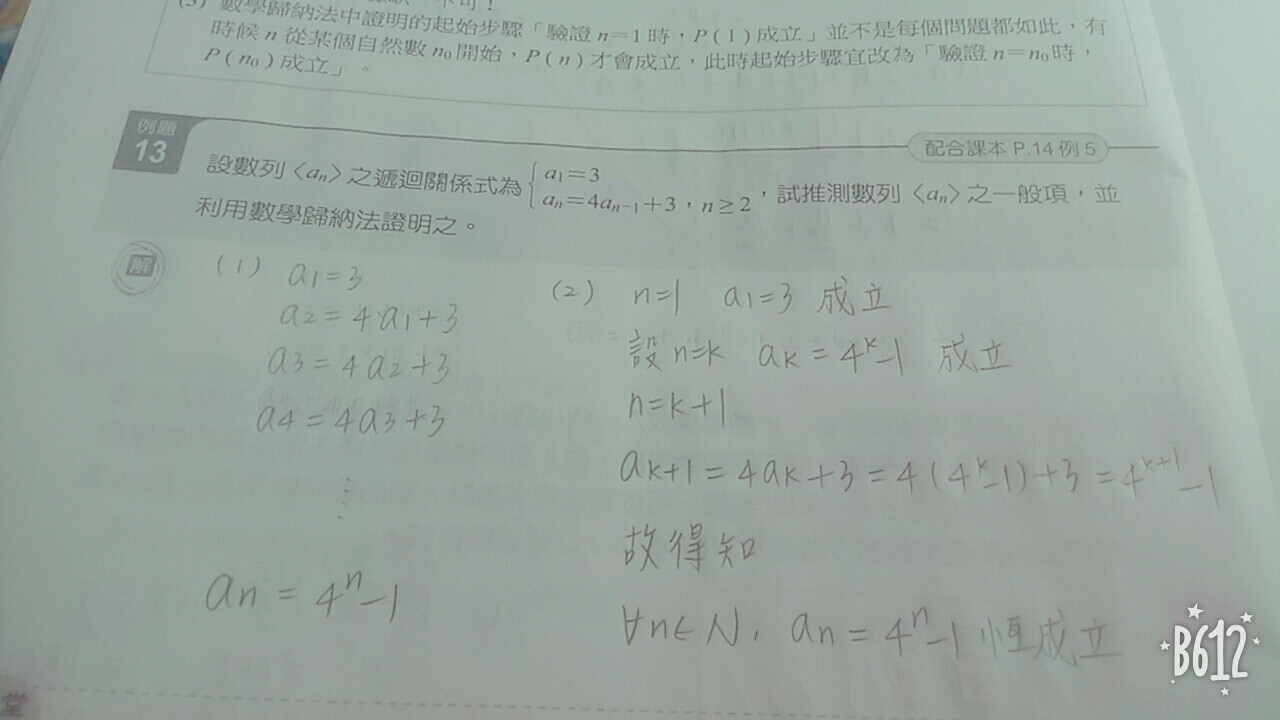 (3) 數學歸納法中證明的起始步驟「驗證 n=1 時，P(1) 成立」並不是每個問題都如此，有
時候 n 從某個自然數 n₀ 開始，P(n) 才會成立，此時起始步驟宜改為「驗證 n=n₀ 時，
P(n₀) 成立」。
例題
13
配合課本 P.14 例 5
設數列〈aₙ〉之遞迴關係式為 { a₁=3
aₙ=4aₙ₋₁+3，n≥2 ，試推測數列〈aₙ〉之一般項，並
利用數學歸納法證明之。
解
(1) a₁=3
a₂=4·a₁+3
a₃=4a₂+3
a₄=4a₃+3
⋮
aₙ=4ⁿ-1
(2) n=1 a₁=3 成立
設 n=k aₖ=4ᵏ-1 成立
n=k+1
aₖ₊₁=4aₖ+3=4(4ᵏ-1)+3=4ᵏ⁺¹-1
故得知
∀n∈N, aₙ=4ⁿ-1 恆成立
B612
堂